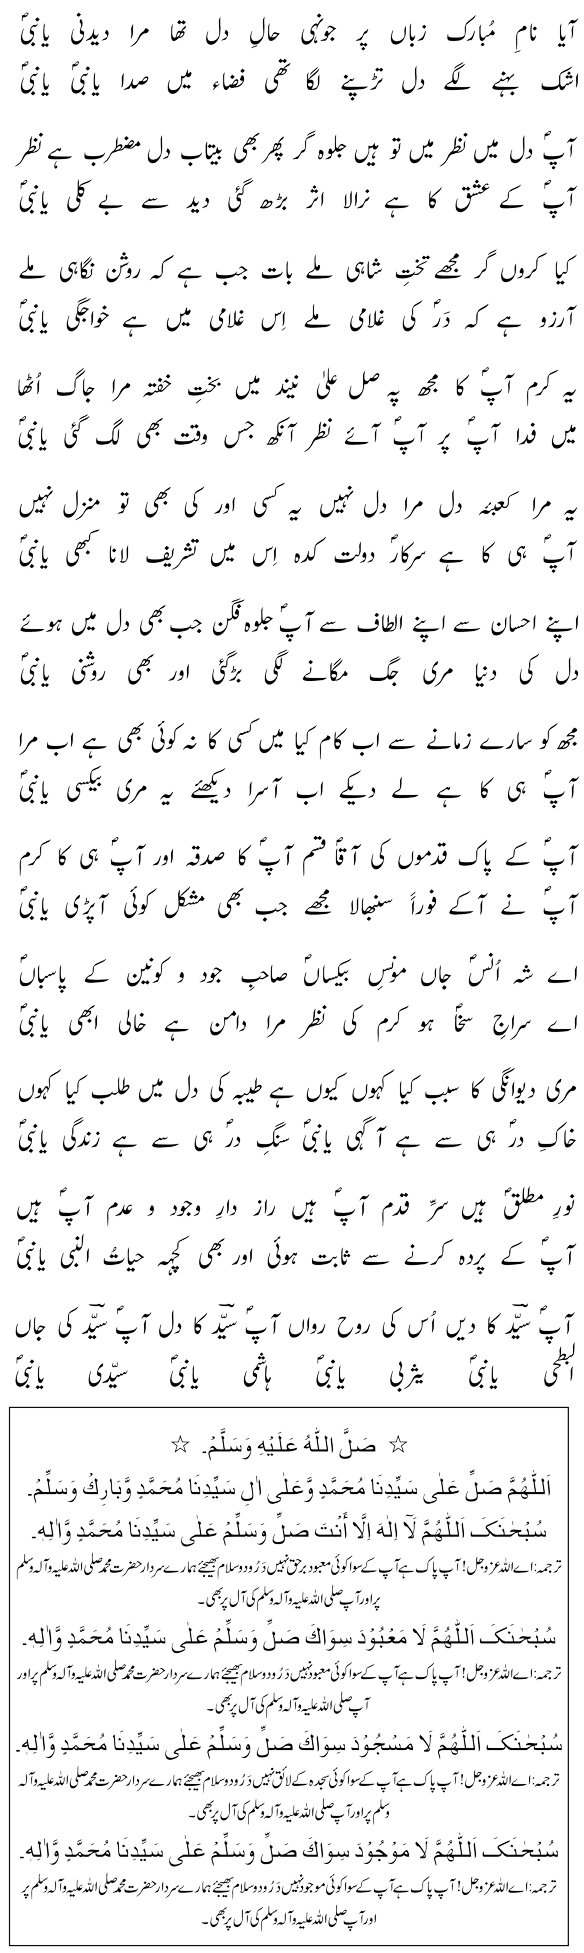 آیا نامِ مُبارک زباں پر جونہی حالِ دل تھا مرا دیدنی یانبیؐ
اشک بہنے لگے دل تڑپنے لگا تھی فضاء میں صدا یانبیؐ یانبیؐ
آپؐ دل میں نظر میں تو ہیں جلوہ گر پھر بھی بیتاب دل مضطرب ہے نظر
آپؐ کے عشق کا ہے نرالا اثر بڑھ گئی دید سے بے کلی یانبیؐ
کیا کروں گر مجھے تختِ شاہی ملے بات جب ہے کہ روشن نگاہی ملے
آرزو ہے کہ دَرؐ کی غلامی ملے اِس غلامی میں ہے خواجگی یانبیؐ
یہ کرم آپؐ کا مجھ پہ صل علیٰ نیند میں بختِ خفتہ مرا جاگ اُٹھا
میں فدا آپؐ پر آپؐ آئے نظر آنکھ جس وقت بھی لگ گئی یانبیؐ
یہ مرا کعبئہ دل مرا دل نہیں یہ کسی اور کی بھی تو منزل نہیں
آپؐ ہی کا ہے سرکارؐ دولت کدہ اِس میں تشریف لانا کبھی یانبیؐ
اپنے احسان سے اپنے الطاف سے آپؐ جلوہ فگن جب بھی دل میں ہوئے
دل کی دنیا مری جگ مگانے لگی بڑگئی اور بھی روشنی یانبیؐ
مجھ کو سارے زمانے سے اب کام کیا میں کسی کا نہ کوئی بھی ہے اب مرا
آپؐ ہی کا ہے لے دیکے اب آسرا دیکھئے یہ مری بیکسی یانبیؐ
آپؐ کے پاک قدموں کی آقاؐ قسم آپؐ کا صدقہ اور آپؐ ہی کا کرم
آپؐ نے آکے فوراً سنبھالا مجھے جب بھی مشکل کوئی آپڑی یانبیؐ
اے شہ اُنسؐ جاں مونسِ بیکساںؐ صاحبِ جود و کونین کے پاسباںؐ
اے سراجِ سخاؐ ہو کرم کی نظر مرا دامن ہے خالی ابھی یانبیؐ
مری دیوانگی کا سبب کیا کہوں کیوں ہے طیبہ کی دل میں طلب کیا کہوں
خاکِ درؐ ہی سے ہے آگہی یانبیؐ سنگِ درؐ ہی سے ہے زندگی یانبیؐ
نورِ مطلقؐ ہیں سرِّ قدم آپؐ ہیں راز دارِ وجود و عدم آپؐ ہیں
آپؐ کے پردہ کرنے سے ثابت ہوئی اور بھی کچہہ حیاتُ النبی یانبیؐ
آپؐ سیّد کا دیں اُس کی روح رواں آپؐ سیّد کا دل آپؐ سیّد کی جاں
ابطحی یانبیؐ یثربی یانبیؐ ہاشمی یانبیؐ سیّدی یانبیؐ
☆ صَلَّ اللّٰهُ عَلَيْهِ وَسَلَّمْ۔ ☆
اَللّٰهُمَّ صَلِّ عَلٰی سَيِّدِنَا مُحَمَّدٍ وَّعَلٰی اٰلِ سَيِّدِنَا مُحَمَّدٍ وَّبَارِكْ وَسَلِّمْ۔
سُبْحٰنَکَ اَللّٰهُمَّ لَآ اِلٰهَ اِلَّا أَنْتَ صَلِّ وَسَلِّمْ عَلٰی سَيِّدِنَا مُحَمَّدٍ وَّاٰلِهٖ۔
ترجمہ: اے اللہ عزوجل! آپ پاک ہے آپ کے سوا کوئی معبود برحق نہیں دَرُود و سلام بھیجئے ہمارے سردار حضرت محمد صلی اللہ علیہ وآلہ وسلم
پر اور آپ صلی اللہ علیہ وآلہ وسلم کی آل پر بھی۔
سُبْحٰنَکَ اَللّٰهُمَّ لَا مَعْبُوْدَ سِوَاكَ صَلِّ وَسَلِّمْ عَلٰی سَيِّدِنَا مُحَمَّدٍ وَّاٰلِهٖ۔
ترجمہ: اے اللہ عزوجل! آپ پاک ہے آپ کے سوا کوئی معبود نہیں دَرُود و سلام بھیجئے ہمارے سردار حضرت محمد صلی اللہ علیہ وآلہ وسلم پر اور
آپ صلی اللہ علیہ وآلہ وسلم کی آل پر بھی۔
سُبْحٰنَکَ اَللّٰهُمَّ لَا مَسْجُوْدَ سِوَاكَ صَلِّ وَسَلِّمْ عَلٰی سَيِّدِنَا مُحَمَّدٍ وَّاٰلِهٖ۔
ترجمہ: اے اللہ عزوجل! آپ پاک ہے آپ کے سوا کوئی سجدہ کے لائق نہیں دَرُود و سلام بھیجئے ہمارے سردار حضرت محمد صلی اللہ علیہ وآلہ
وسلم پر اور آپ صلی اللہ علیہ وآلہ وسلم کی آل پر بھی۔
سُبْحٰنَکَ اَللّٰهُمَّ لَا مَوْجُوْدَ سِوَاكَ صَلِّ وَسَلِّمْ عَلٰی سَيِّدِنَا مُحَمَّدٍ وَّاٰلِهٖ۔
ترجمہ: اے اللہ عزوجل! آپ پاک ہے آپ کے سوا کوئی موجود نہیں دَرُود و سلام بھیجئے ہمارے سردار حضرت محمد صلی اللہ علیہ وآلہ وسلم پر
اور آپ صلی اللہ علیہ وآلہ وسلم کی آل پر بھی۔